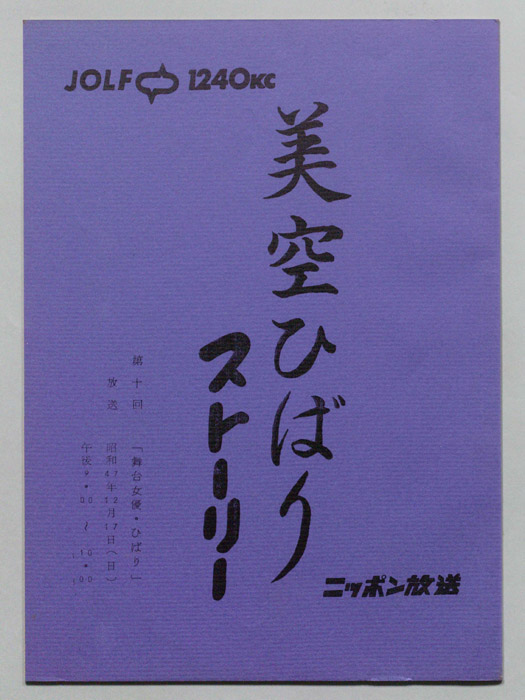 JOLF 1240KC
美空ひばり
ストーリー
第十回 「舞台女優・ひばり」
放送 昭和47年12月17日(日)
午後9・00〜10・00
ニッポン放送